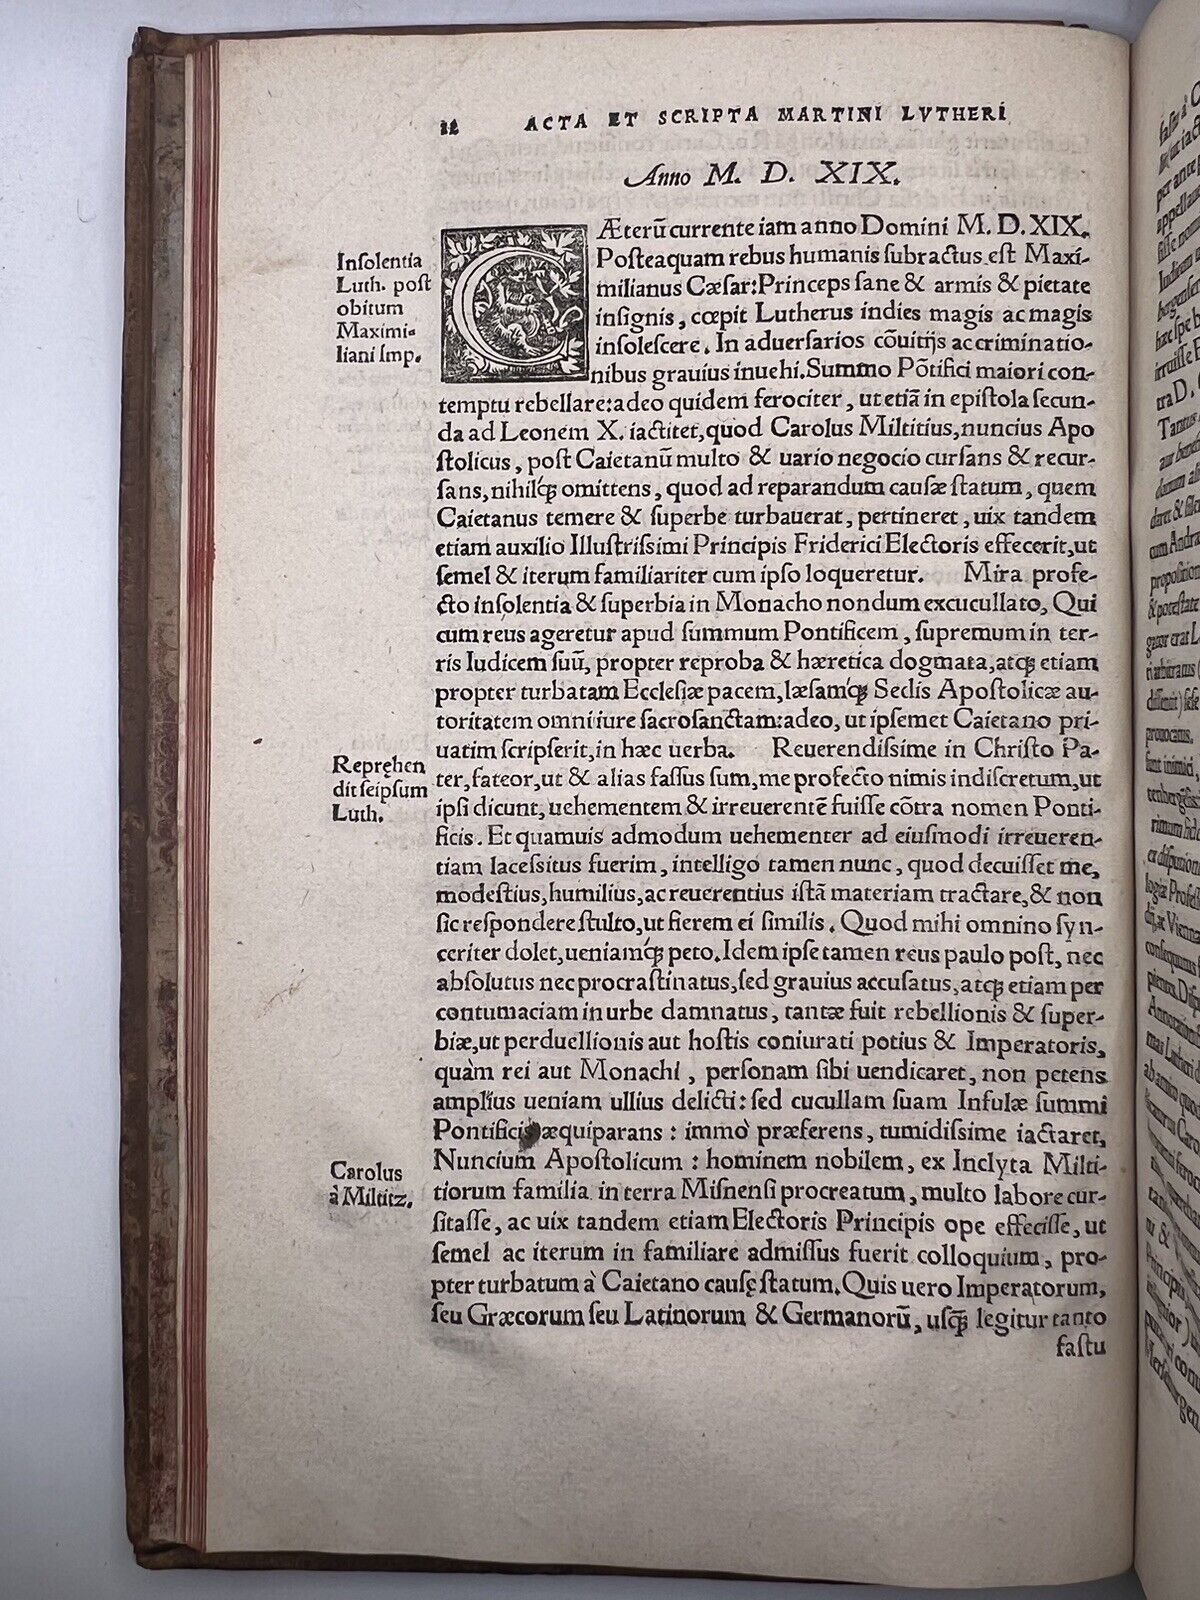 12 ACTA ET SCRIPTA MARTINI LVTHERI
Anno M. D. XIX.
Insolentia
Luth. post
obitum
Maximi-
liani Imp.
CÆterũ currente iam anno Domini M. D. XIX.
Posteaquam rebus humanis subractus est Maxi-
milianus Cæsar: Princeps sane & armis & pietate
insignis, cœpit Lutherus indies magis ac magis
insolescere. In aduersarios cõuitijs ac criminatio-
nibus grauius inuehi. Summo Põtifici maiori con-
temptu rebellare: adeo quidem ferociter, ut etiã in epistola secun-
da ad Leonem X. iactitet, quod Carolus Miltitius, nuncius Apo
stolicus, post Caietanũ multo & uario negocio cursans & recur-
sans, nihilq́; omittens, quod ad reparandum causæ statum, quem
Caietanus temere & superbe turbauerat, pertineret, uix tandem
etiam auxilio Illustrissimi Principis Friderici Electoris effecerit, ut
semel & iterum familiariter cum ipso loqueretur. Mira profe-
cto insolentia & superbia in Monacho nondum excucullato, Qui
cum reus ageretur apud summum Pontificem, supremum in ter-
ris Iudicem suũ, propter reproba & hæretica dogmata, atq; etiam
propter turbatam Ecclesiæ pacem, læsamq́; Sedis Apostolicæ au-
toritatem omni iure sacrosanctam: adeo, ut ipsemet Caietano pri-
uatim scripserit, in hæc uerba. Reuerendissime in Christo Pa-
Repręhen
dit seipsum
Luth.
ter, fateor, ut & alias fassus sum, me profecto nimis indiscretum, ut
ipsi dicunt, uehementem & irreuerentẽ fuisse cõtra nomen Ponti-
ficis. Et quamuis admodum uehementer ad eiusmodi irreueren-
tiam lacessitus fuerim, intelligo tamen nunc, quod decuisset me,
modestius, humilius, ac reuerentius istã materiam tractare, & non
sic respondere stulto, ut fierem ei similis. Quod mihi omnino syn-
ceriter dolet, ueniamq́; peto. Idem ipse tamen reus paulo post, nec
absolutus nec procrastinatus, sed grauius accusatus, atq; etiam per
contumaciam in urbe damnatus, tantæ fuit rebellionis & super-
biæ, ut perduellionis aut hostis coniurati potius & Imperatoris,
quàm rei aut Monachi, personam sibi uendicaret, non petens
amplius ueniam ullius delicti: sed cucullam suam Infulæ summi
Pontificis æquiparans: immò præferens, tumidissime iactaret,
Carolus
à Miltitz.
Nuncium Apostolicum: hominem nobilem, ex Inclyta Milti-
tiorum familia in terra Misnensi procreatum, multo labore cur-
sitasse, ac uix tandem etiam Electoris Principis ope effecisse, ut
semel ac iterum in familiare admissus fuerit colloquium, pro-
pter turbatum à Caietano causę statum. Quis uero Imperatorum,
seu Græcorum seu Latinorum & Germanorũ, usq̃; legitur tanto
fastu